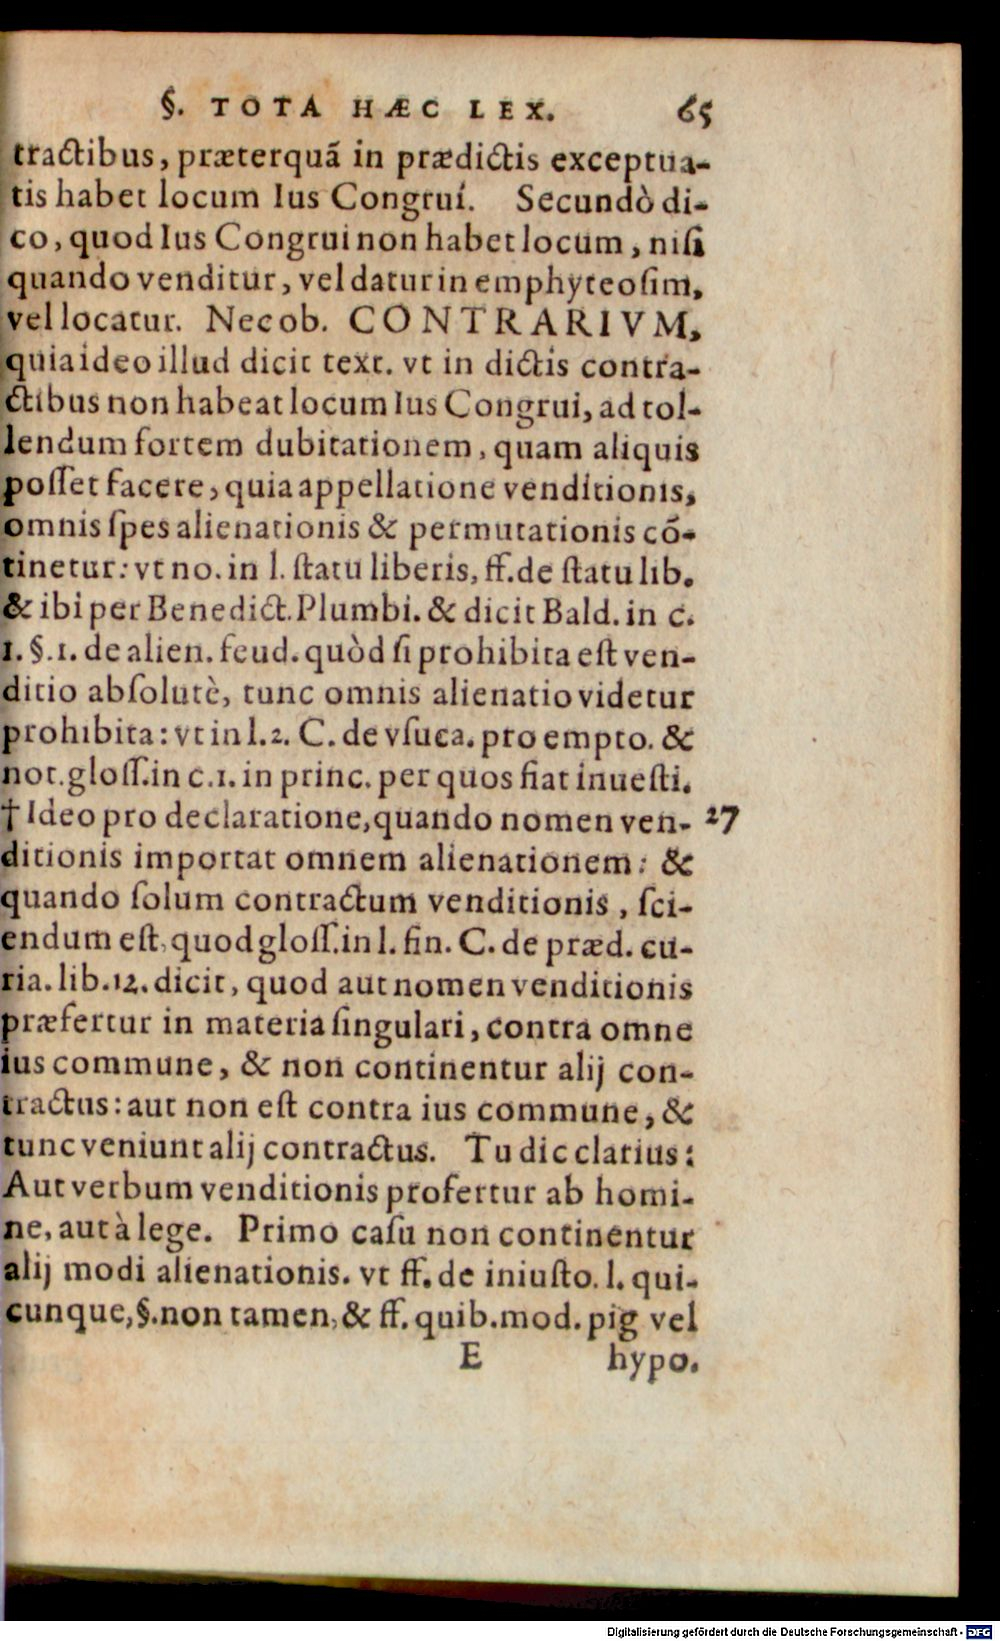 §. TOTA HÆC LEX. 65
tractibus, præterquã in prædictis exceptua-
tis habet locum Ius Congrui. Secundò di-
co, quod Ius Congrui non habet locum, niſi
quando venditur, vel datur in emphyteoſim,
vel locatur. Nec ob. CONTRARIVM,
quia ideo illud dicit text. vt in dictis contra-
ctibus non habeat locum Ius Congrui, ad tol-
lendum fortem dubitationem, quam aliquis
poſſet facere, quia appellatione venditionis,
omnis ſpes alienationis & permutationis cõ-
tinetur: vt no. in l. ſtatu liberis, ff. de ſtatu lib.
& ibi per Benedict. Plumbi. & dicit Bald. in c.
1. §. 1. de alien. feud. quòd ſi prohibita eſt ven-
ditio abſolutè, tunc omnis alienatio videtur
prohibita: vt in l. 2. C. de vſuca. pro empto. &
not. gloſſ. in c. 1. in princ. per quos fiat inueſti.
† Ideo pro declaratione, quando nomen ven- 27
ditionis importat omnem alienationem: &
quando ſolum contractum venditionis, ſci-
endum eſt, quod gloſſ. in l. fin. C. de præd. cu-
ria. lib. 12. dicit, quod aut nomen venditionis
præfertur in materia ſingulari, contra omne
ius commune, & non continentur alij con-
tractus: aut non eſt contra ius commune, &
tunc veniunt alij contractus. Tu dic clarius:
Aut verbum venditionis profertur ab homi-
ne, aut à lege. Primo caſu non continentur
alij modi alienationis. vt ff. de iniuſto. l. qui-
cunque, §. non tamen, & ff. quib. mod. pig vel
E hypo.
Digitalisierung gefördert durch die Deutsche Forschungsgemeinschaft - DFG